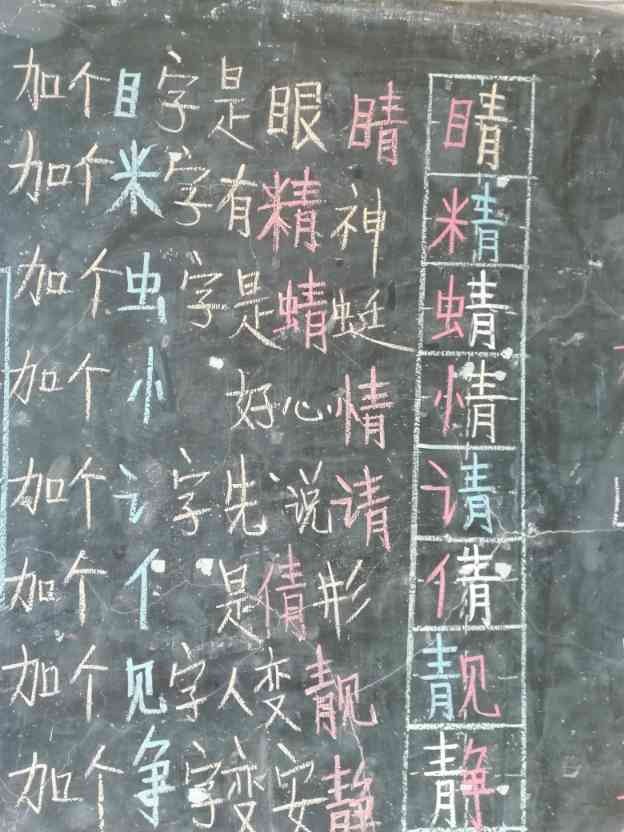 加个目字是眼睛 睛
加个米字有精神 精
加个虫字是蜻蜓 蜻
加个忄 好心情 情
加个讠字先说请 请
加个亻 是倩形 倩
加个见字人变靓 靓
加个争字变安静 静